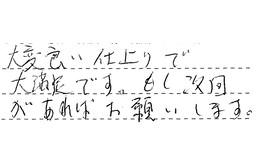 大変良い仕上りで
大満足です。もし次回
があればお願いします。